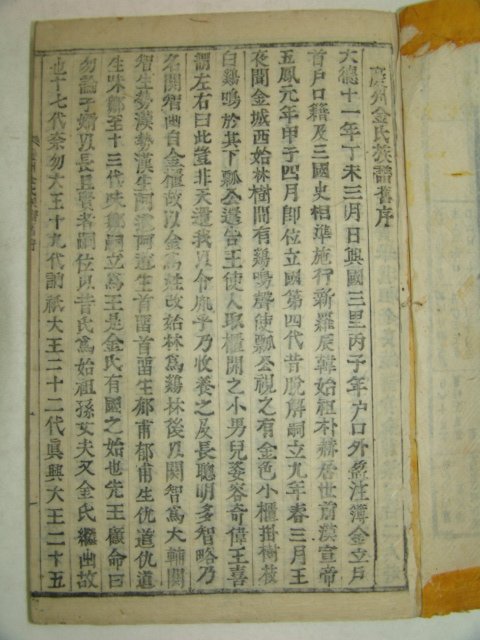 慶州金氏族譜舊序
大德十一年丁未三月日興國三里丙子年户口外盤注簿金立戶
首戶口籍及三國史相準施行新羅辰韓始祖朴赫居世前漢宣帝
五鳳元年甲子四月卽位立國第四代昔脫解嗣立九年春三月王
夜聞金城西始林樹間有鷄鳴聲使瓢公視之有金色小櫃掛樹枝
白鷄鳴於其下瓢公還告王使人取櫃開之小男兒姿容奇偉王喜
謂左右曰此豈非天遺我以令胤乎乃收養之及長聰明多智略乃
名閼智出自金櫃故以金爲姓改始林爲鷄林後以閼智爲大輔閼
智生勢漢勢漢生阿道阿道生首留首留生郁甫郁甫生仇道仇道
生味鄒至十三代味鄒嗣立爲王是金氏有國之始也先王顧命曰
勿論子婿以長且賢者嗣位以昔氏爲始祖孫女夫又金氏繼出故
也十七代奈勿大王十九代訥祇大王二十二代眞興大王二十五